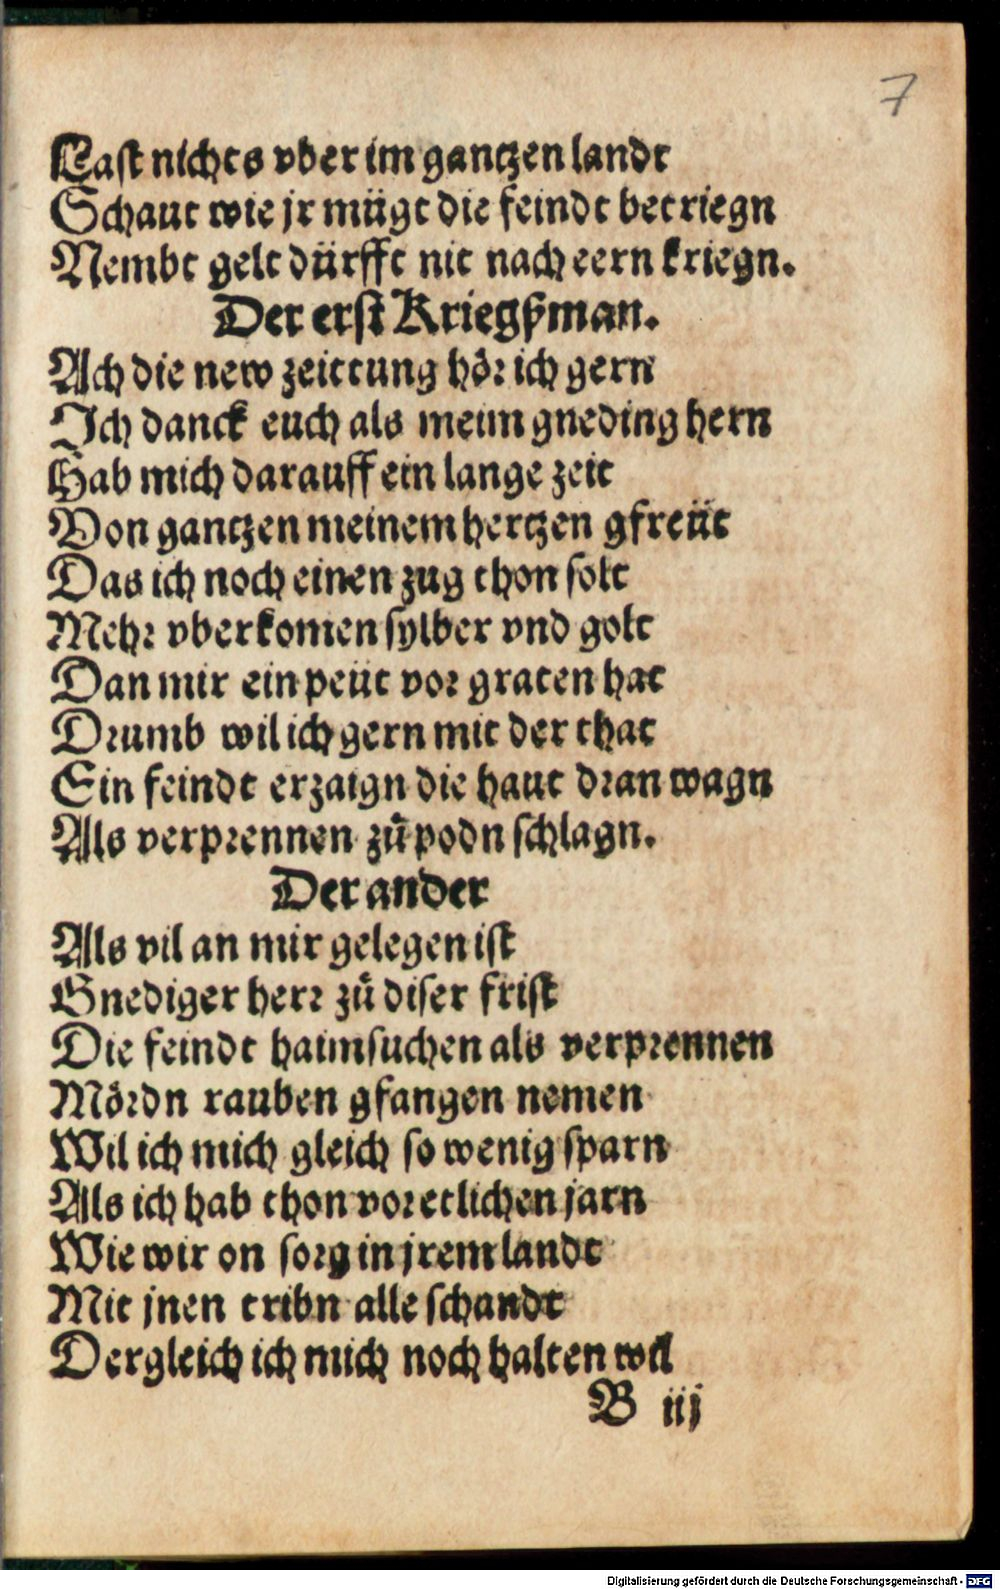 7
Last nichts vber im gantzen landt
Schaut wie jr mügt die feindt betriegn
Nembt gelt dürfft nit nach eern kriegn.
Der erst Kriegßman.
Ach die new zeittung hör ich gern
Ich danck euch als meim gneding hern
Hab mich darauff ein lange zeit
Von gantzen meinem hertzen gfreüt
Das ich noch einen zug thon solt
Mehr vberkomen sylber vnd golt
Dan mir ein peüt vor graten hat
Drumb wil ich gern mit der that
Ein feindt erzaign die haut dran wagn
Als verprennen zů podn schlagn.
Der ander
Als vil an mir gelegen ist
Gnediger herr zů diser frist
Die feindt haimsuchen als verprennen
Mördn rauben gfangen nemen
Wil ich mich gleich so wenig sparn
Als ich hab thon vor etlichen jarn
Wie wir on sorg in jrem landt
Mit jnen tribn alle schandt
Dergleich ich mich noch halten wil
B iij
Digitalisierung gefördert durch die Deutsche Forschungsgemeinschaft - DFG